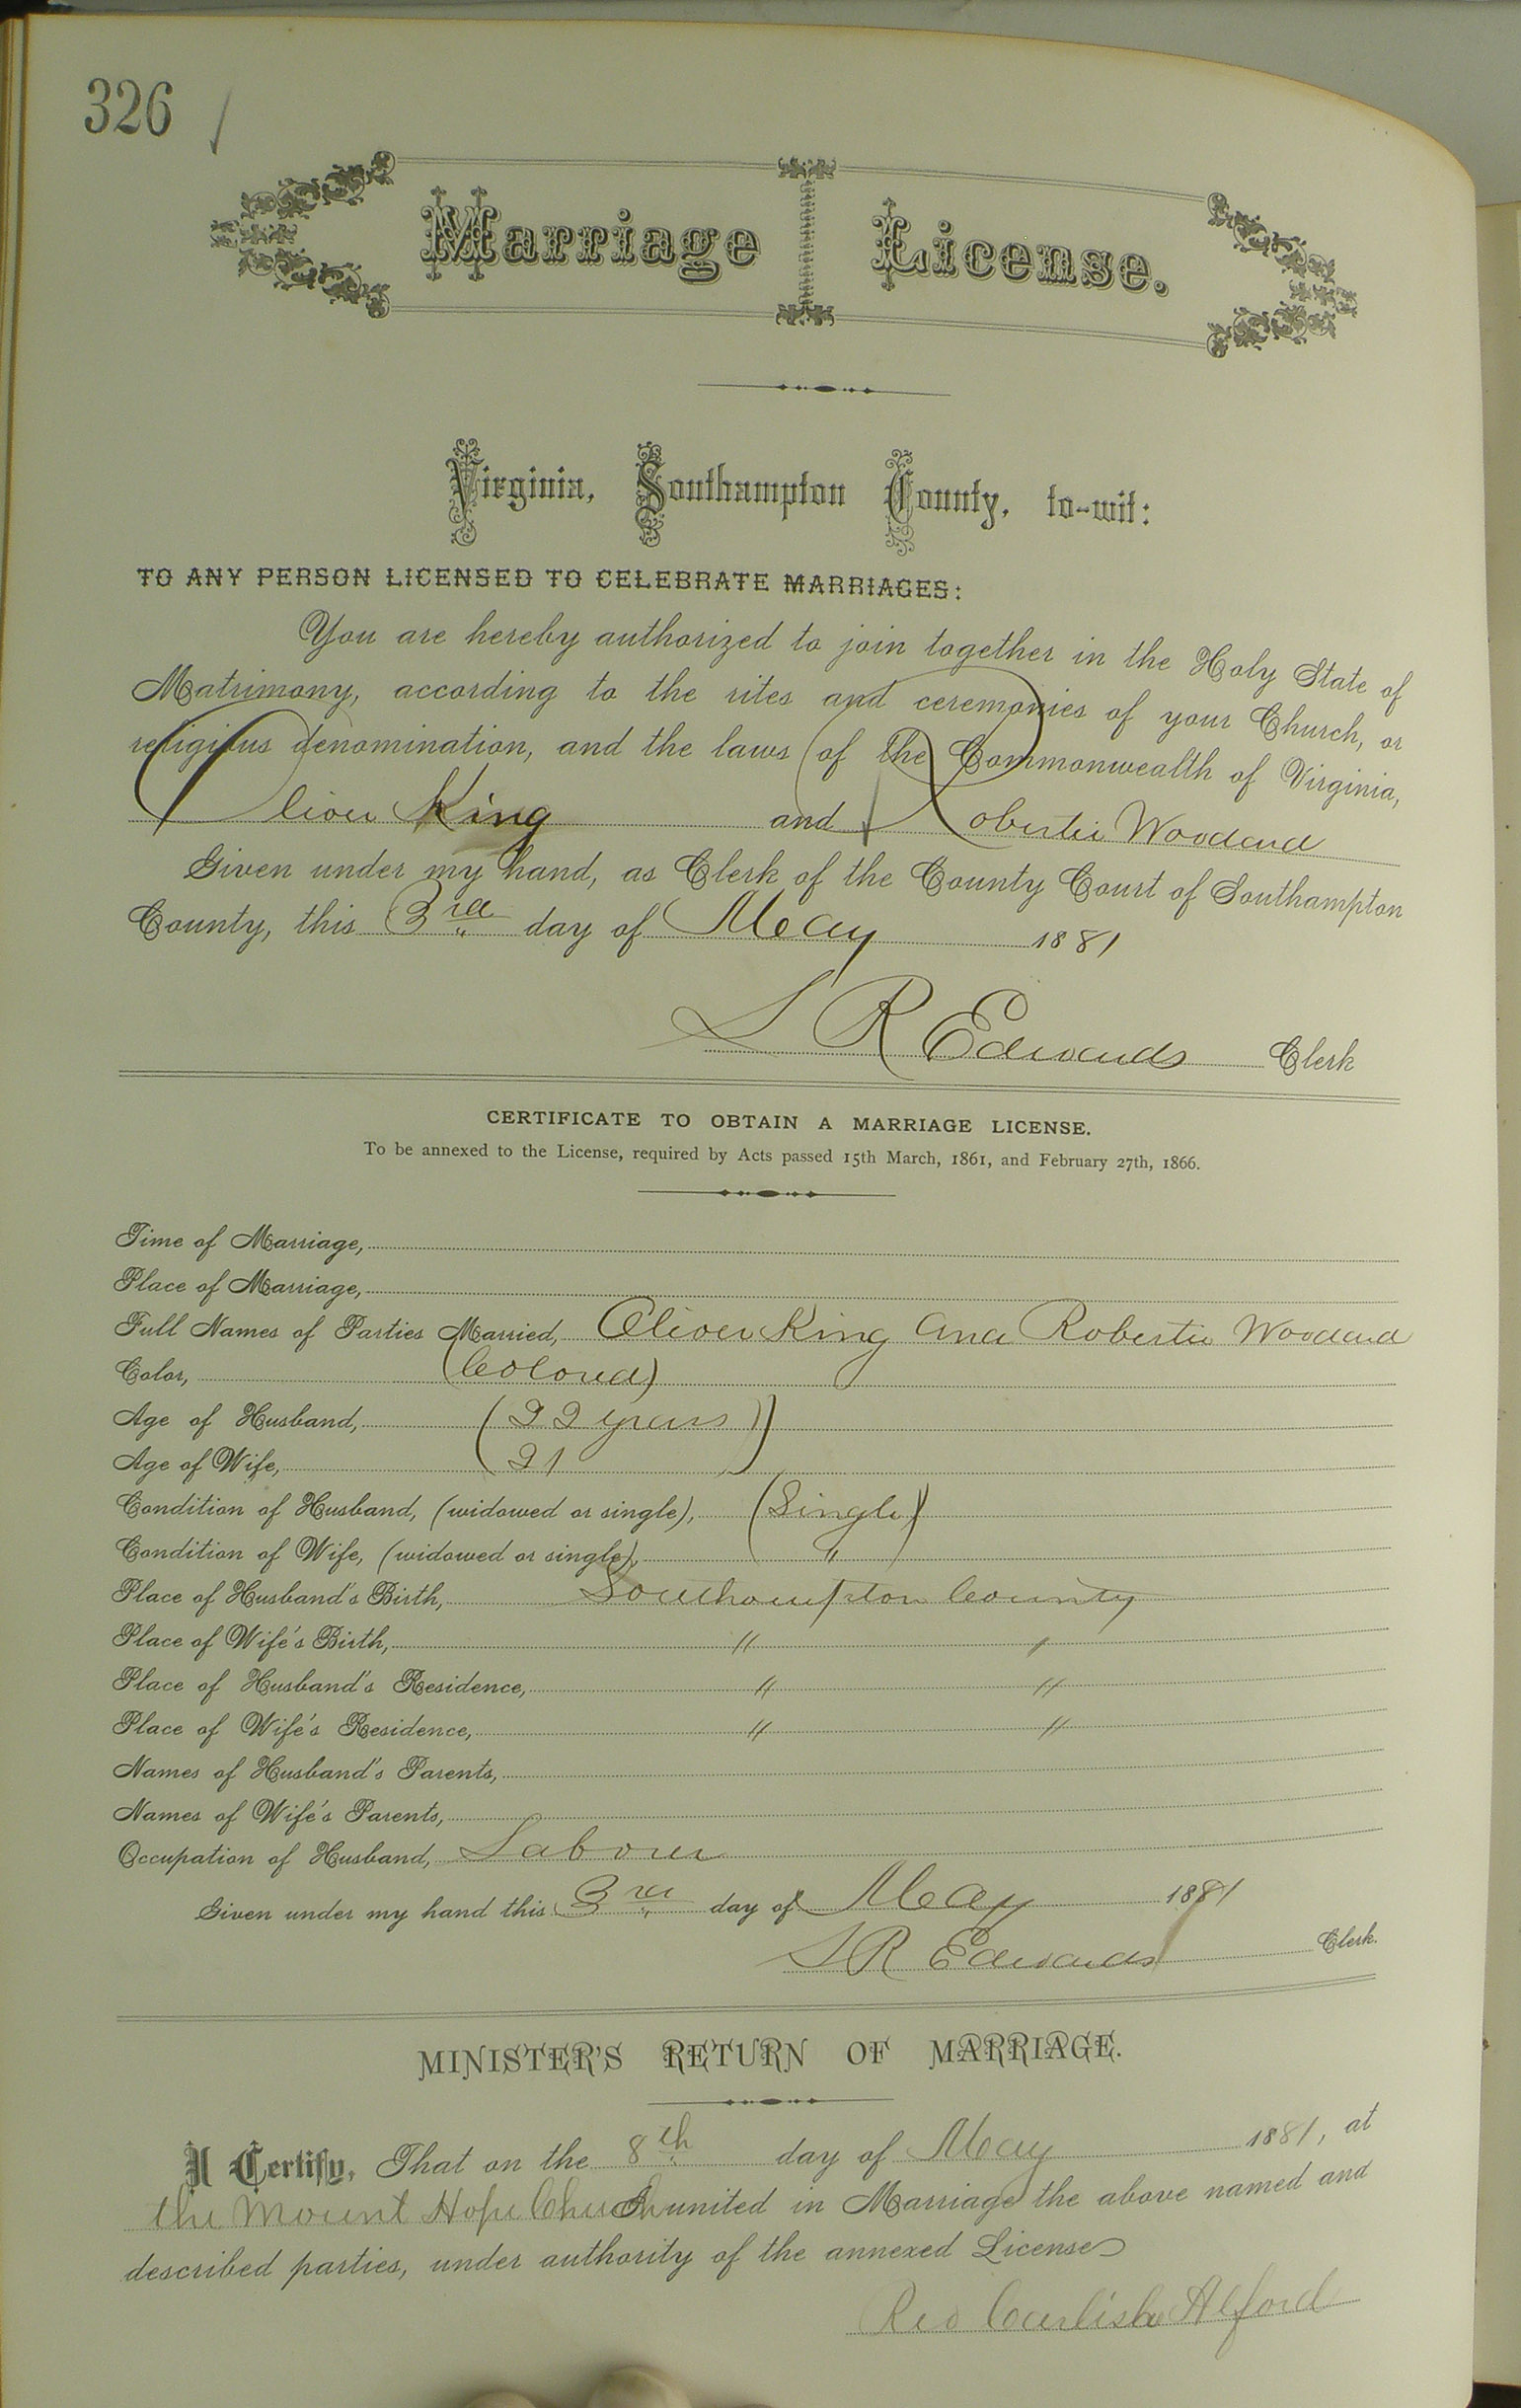 326
Marriage License.
Virginia, Southampton County, to-wit:
TO ANY PERSON LICENSED TO CELEBRATE MARRIAGES:
You are hereby authorized to join together in the Holy State of
Matrimony, according to the rites and ceremonies of your Church, or
religious denomination, and the laws of the Commonwealth of Virginia,
Oliver King and Robertie Woodard
Given under my hand, as Clerk of the County Court of Southampton
County, this 3rd day of May 1881
L R Edwards Clerk
CERTIFICATE TO OBTAIN A MARRIAGE LICENSE.
To be annexed to the License, required by Acts passed 15th March, 1861, and February 27th, 1866.
Time of Marriage,
Place of Marriage,
Full Names of Parties Married, Oliver King and Robertie Woodard
Color, (Colored)
Age of Husband, (22 years)
Age of Wife, (21
Condition of Husband, (widowed or single), (Single)
Condition of Wife, (widowed or single), "
Place of Husband's Birth, Southampton County
Place of Wife's Birth, " "
Place of Husband's Residence, " "
Place of Wife's Residence, " "
Names of Husband's Parents,
Names of Wife's Parents,
Occupation of Husband, Laborer
Given under my hand this 3rd day of May 1881
L R Edwards Clerk.
MINISTER'S RETURN OF MARRIAGE.
I Certify, That on the 8th day of May 1881, at
the Mount Hope Church I united in Marriage the above named and
described parties, under authority of the annexed License
Rev Carlisle Alford